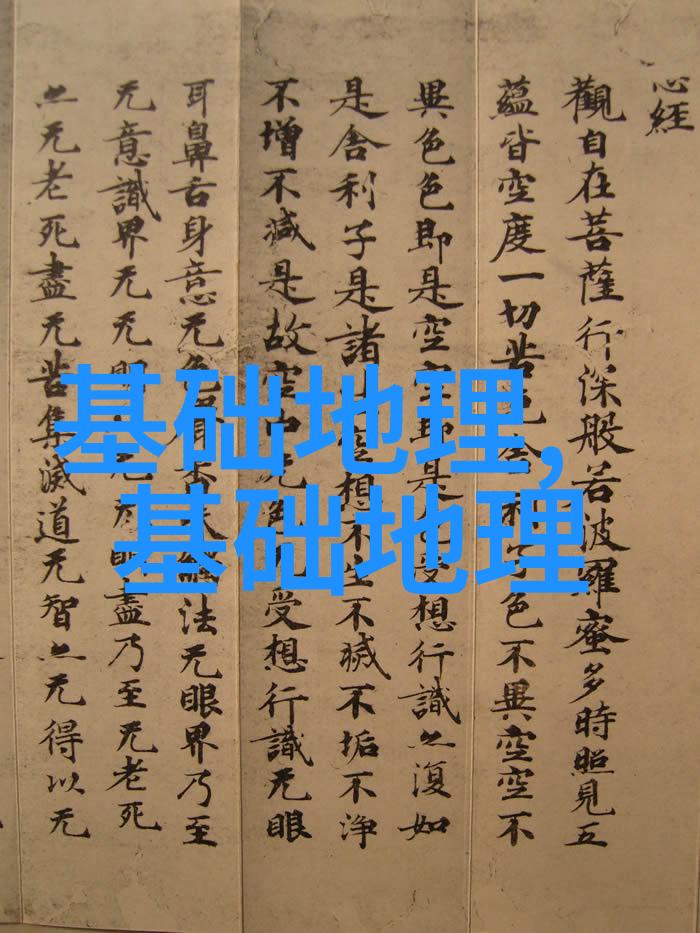 心經
觀自在菩薩行深般若波羅蜜多時照見五
蘊皆空度一切苦子色不異空空不
異色色即是空空即是受想行識亦復如
是舍利子是諸空想不生不滅不垢不淨
不增不減是故空中无色受想行識无眼
耳鼻舌身意无色法无眼界乃至
无意識界无无明盡乃至无老死
亦无老死盡无苦集滅道无智亦无得以无
基础地理,
基础地理